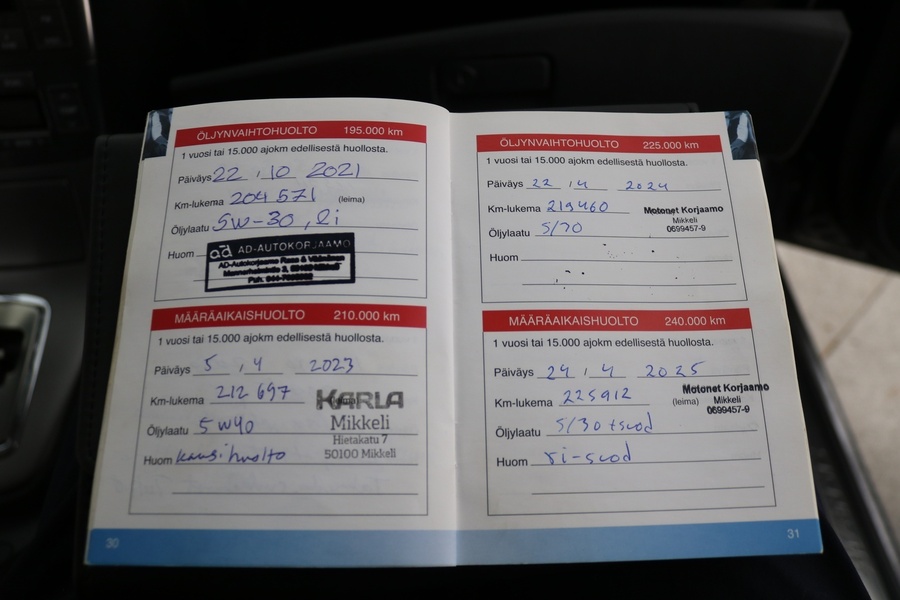 ÖLJYNVAIHTOHUOLTO 195.000 km
1 vuosi tai 15.000 ajokm edellisestä huollosta.
Päiväys 22 . 10 2021
Km-lukema 204 571 (leima)
Öljylaatu 5W-30
Huom
ad AD-AUTOKORJAAMO
AD-Autokorjaamo
MÄÄRÄAIKAISHUOLTO 210.000 km
1 vuosi tai 15.000 ajokm edellisestä huollosta.
Päiväys 5 . 4 2023
Km-lukema 212 697
Öljylaatu 5W40
Huom kausihuolto
KARLA
Mikkeli
Hietakatu 7
50100 Mikkeli
30
ÖLJYNVAIHTOHUOLTO 225.000 km
1 vuosi tai 15.000 ajokm edellisestä huollosta.
Päiväys 22 . 4 2024
Km-lukema 219460
Öljylaatu
Huom
Motonet Korjaamo
Mikkeli
0699457-9
MÄÄRÄAIKAISHUOLTO 240.000 km
1 vuosi tai 15.000 ajokm edellisestä huollosta.
Päiväys 24 . 4 2025
Km-lukema 225912 (leima)
Öljylaatu 5/30 +suod
Huom ri-suod
Motonet Korjaamo
Mikkeli
0699457-9
31